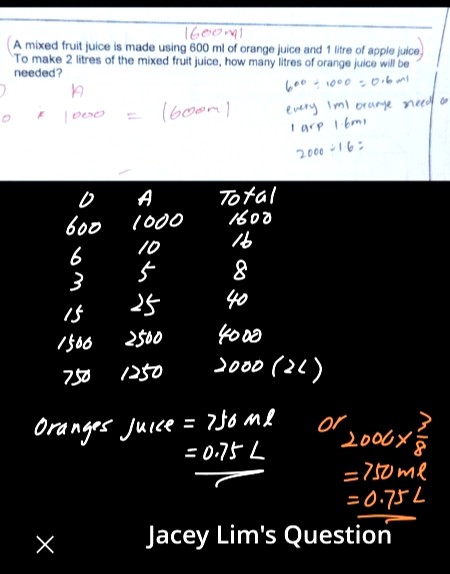 1600ml
A mixed fruit juice is made using 600 ml of orange juice and 1 litre of apple juice.
To make 2 litres of the mixed fruit juice, how many litres of orange juice will be
needed?
600 ÷ 1000 = 0.6 ml
A
1000 = 1600ml
every 1ml orange need
1 grp 1.6ml
2000 ÷ 16 =
O A Total
600 1000 1600
6 10 16
3 5 8
15 25 40
1500 2500 4000
750 1250 2000 (2L)
Oranges Juice = 750 ml
= 0.75 L
or
2000 × 3/8
= 750 ml
= 0.75 L
Jacey Lim's Question